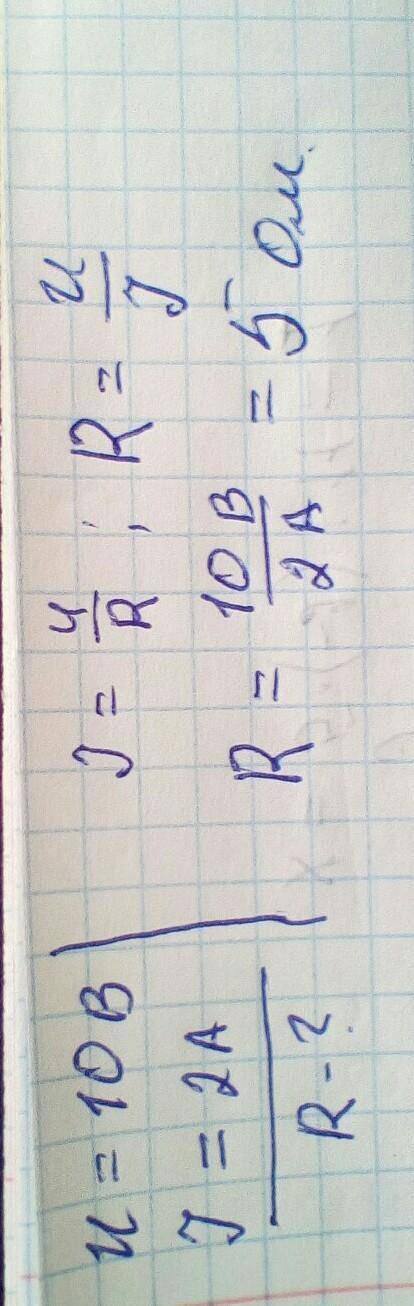 U = 10 В
J = 2 А
R - ?
J = U/R ; R = U/J
R = 10 В/2 А = 5 Ом.